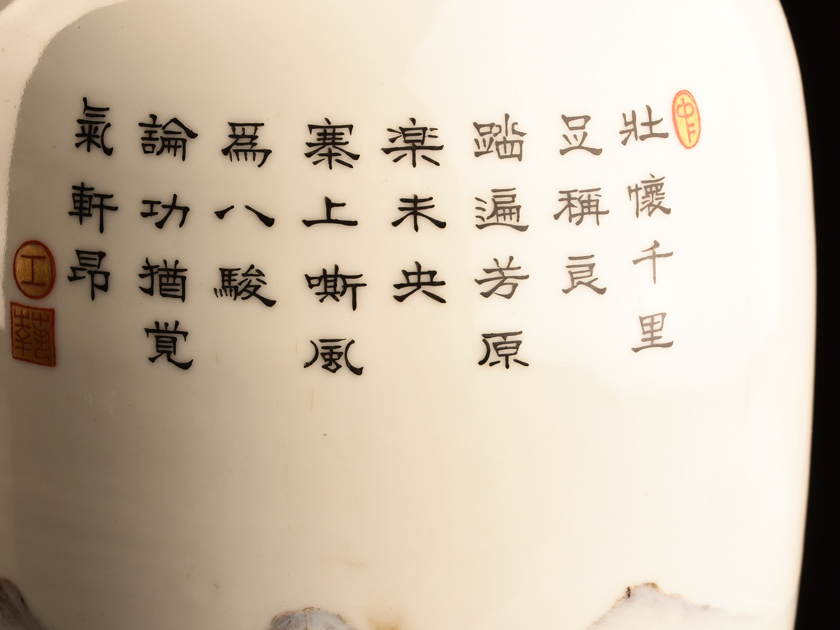 壯懷千里
足稱良
踏遍芳原
楽未央
寨上嘶風
爲八駿
論功猶覚
氣軒昂
工
藝